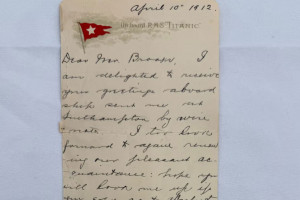 April 10th 1912.
On board R.M.S. "TITANIC"
Dear Mrs. Brooks, I
am delighted to receive
your greetings aboard
ship sent me at
Southampton by wire
note. I too look
forward to again renew
ing our pleasant ac
quaintance: hope you
will look me up if
you